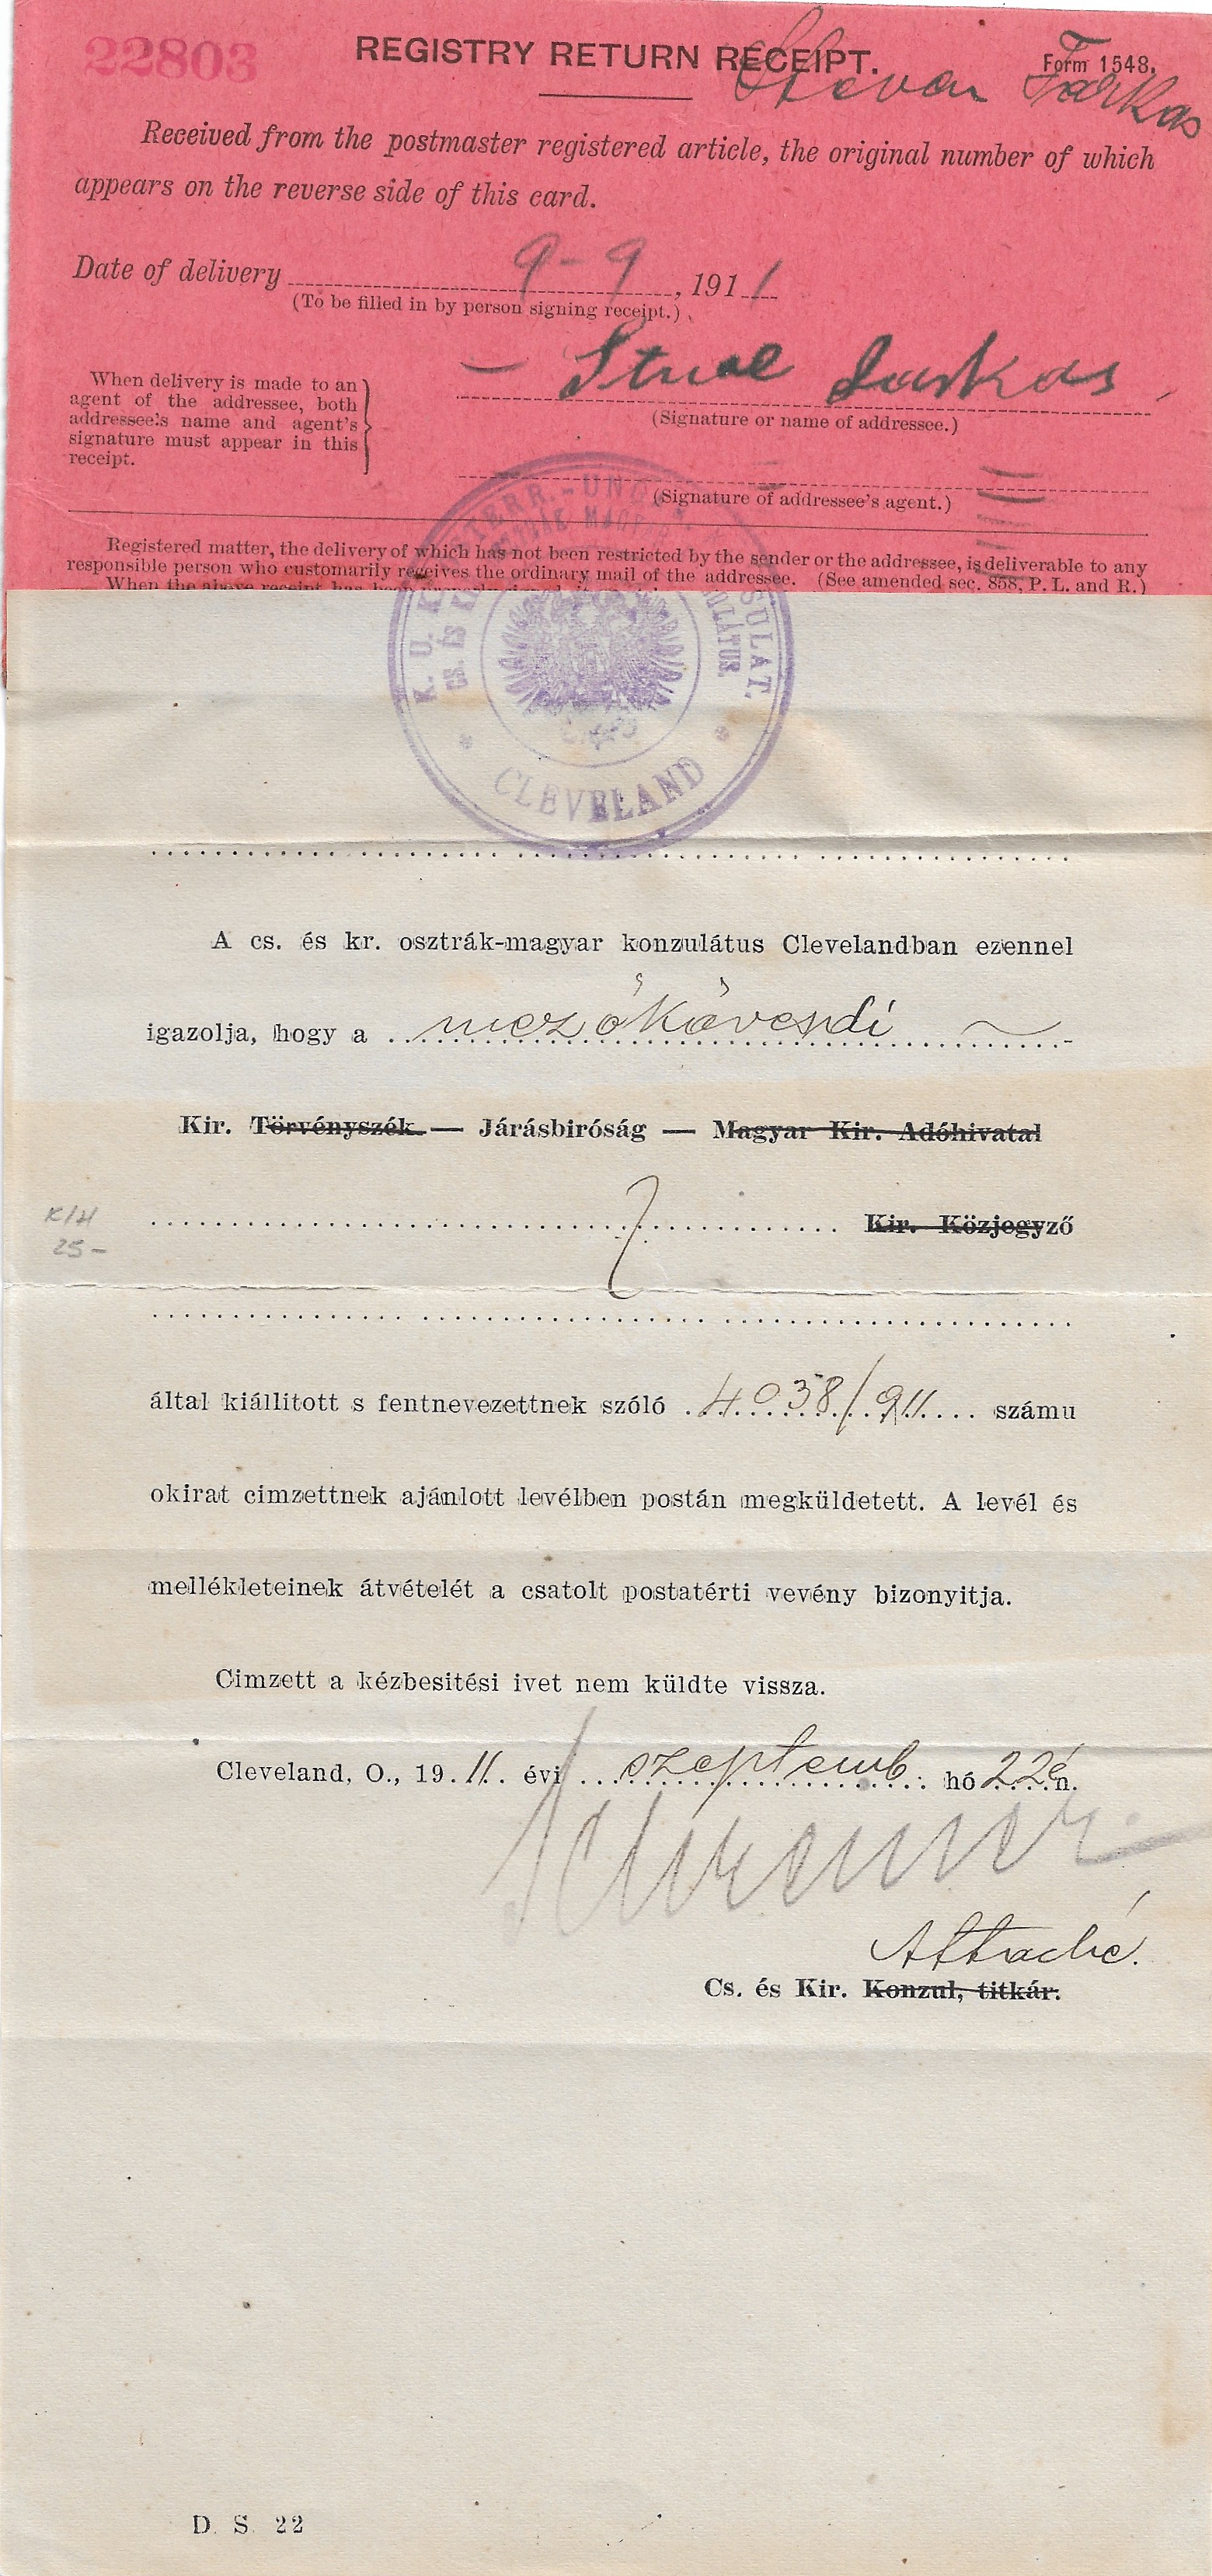 22803
REGISTRY RETURN RECEIPT.
Form 1548.
Stevan Farkas
Received from the postmaster registered article, the original number of which
appears on the reverse side of this card.
Date of delivery 9-9, 1911
(To be filled in by person signing receipt.)
When delivery is made to an
agent of the addressee, both
addressee's name and agent's
signature must appear in this
receipt.
Farkas
(Signature or name of addressee.)
(Signature of addressee's agent.)
Registered matter, the delivery of which has not been restricted by the sender or the addressee, is deliverable to any
responsible person who customarily receives the ordinary mail of the addressee. (See amended sec. 858, P. L. and R.)
When the above receipt has been
K. U. K. ÖSTERR.-UNG. KONSULAT.
CS. ÉS K.
CLEVELAND
A cs. és kr. osztrák-magyar konzulátus Clevelandban ezennel
igazolja, hogy a mezőkövesdi
Kir. Törvényszék — Járásbiróság — Magyar Kir. Adóhivatal
K/H
25-
Kir. Közjegyző
által kiállitott s fentnevezettnek szóló 4038/911 számu
okirat cimzettnek ajánlott levélben postán megküldetett. A levél és
mellékleteinek átvételét a csatolt postatérti vevény bizonyitja.
Cimzett a kézbesitési ivet nem küldte vissza.
Cleveland, O., 1911. évi szeptemb. hó 22én.
Attaché.
Cs. és Kir. Konzul, titkár.
D. S. 22